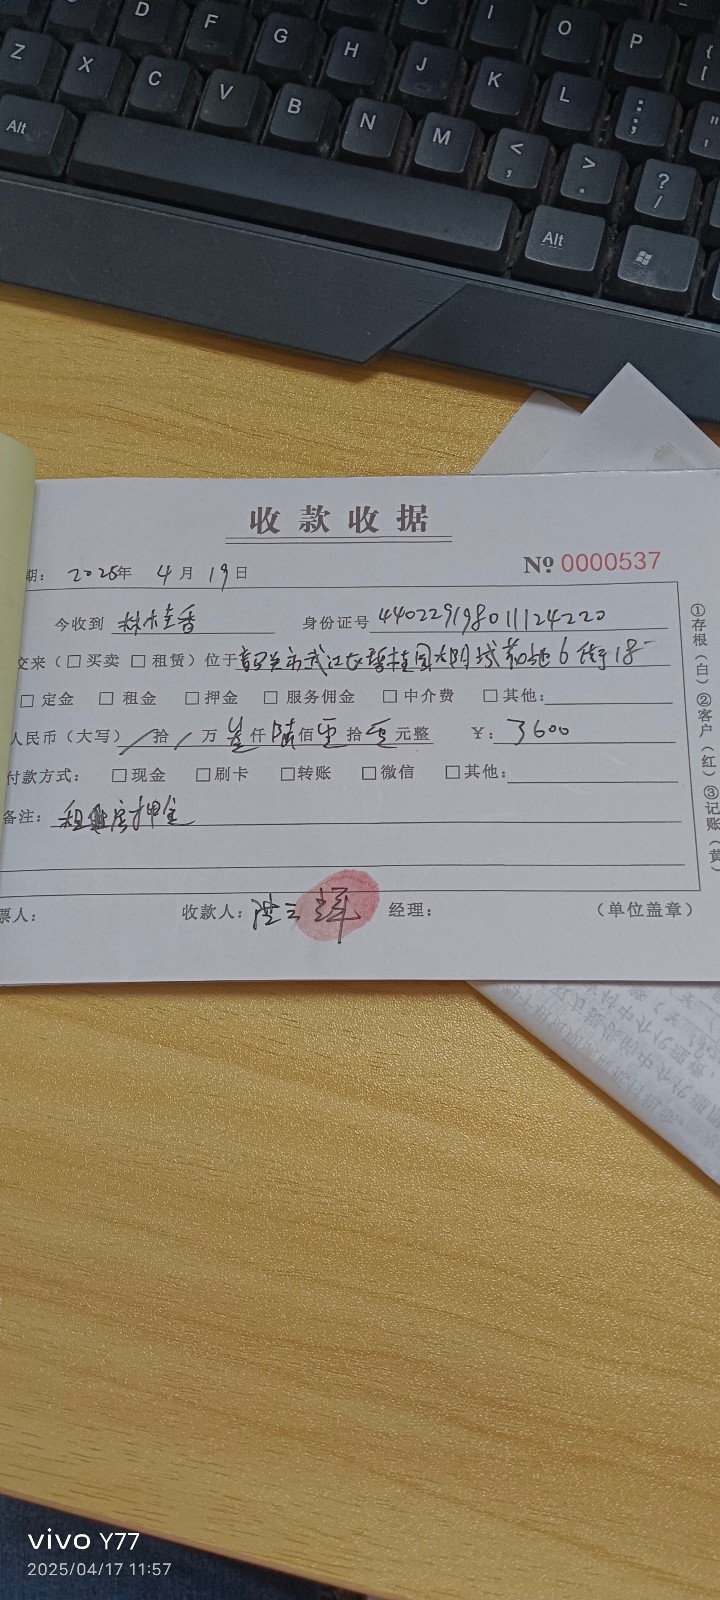 D F G H J I K O L P { [
Z X C V B N M : ; " '
Alt < , > . ? /
Alt
收款收据
期: 2025年 4月 19日 № 0000537
今收到 林桂香 身份证号 440229198011124220
交来(□买卖 □租赁)位于韶关市武江区碧桂园太阳城 6街18
□定金 □租金 □押金 □服务佣金 □中介费 □其他:
人民币(大写) / 拾 / 万 叁仟 陆佰 零拾 零元整 ¥: 3600
付款方式: □现金 □刷卡 □转账 □微信 □其他:
备注: 租 房押金
票人: 收款人: 经理: (单位盖章)
①存根(白)②客户(红)③记账(黄)
vivo Y77
2025/04/17 11:57